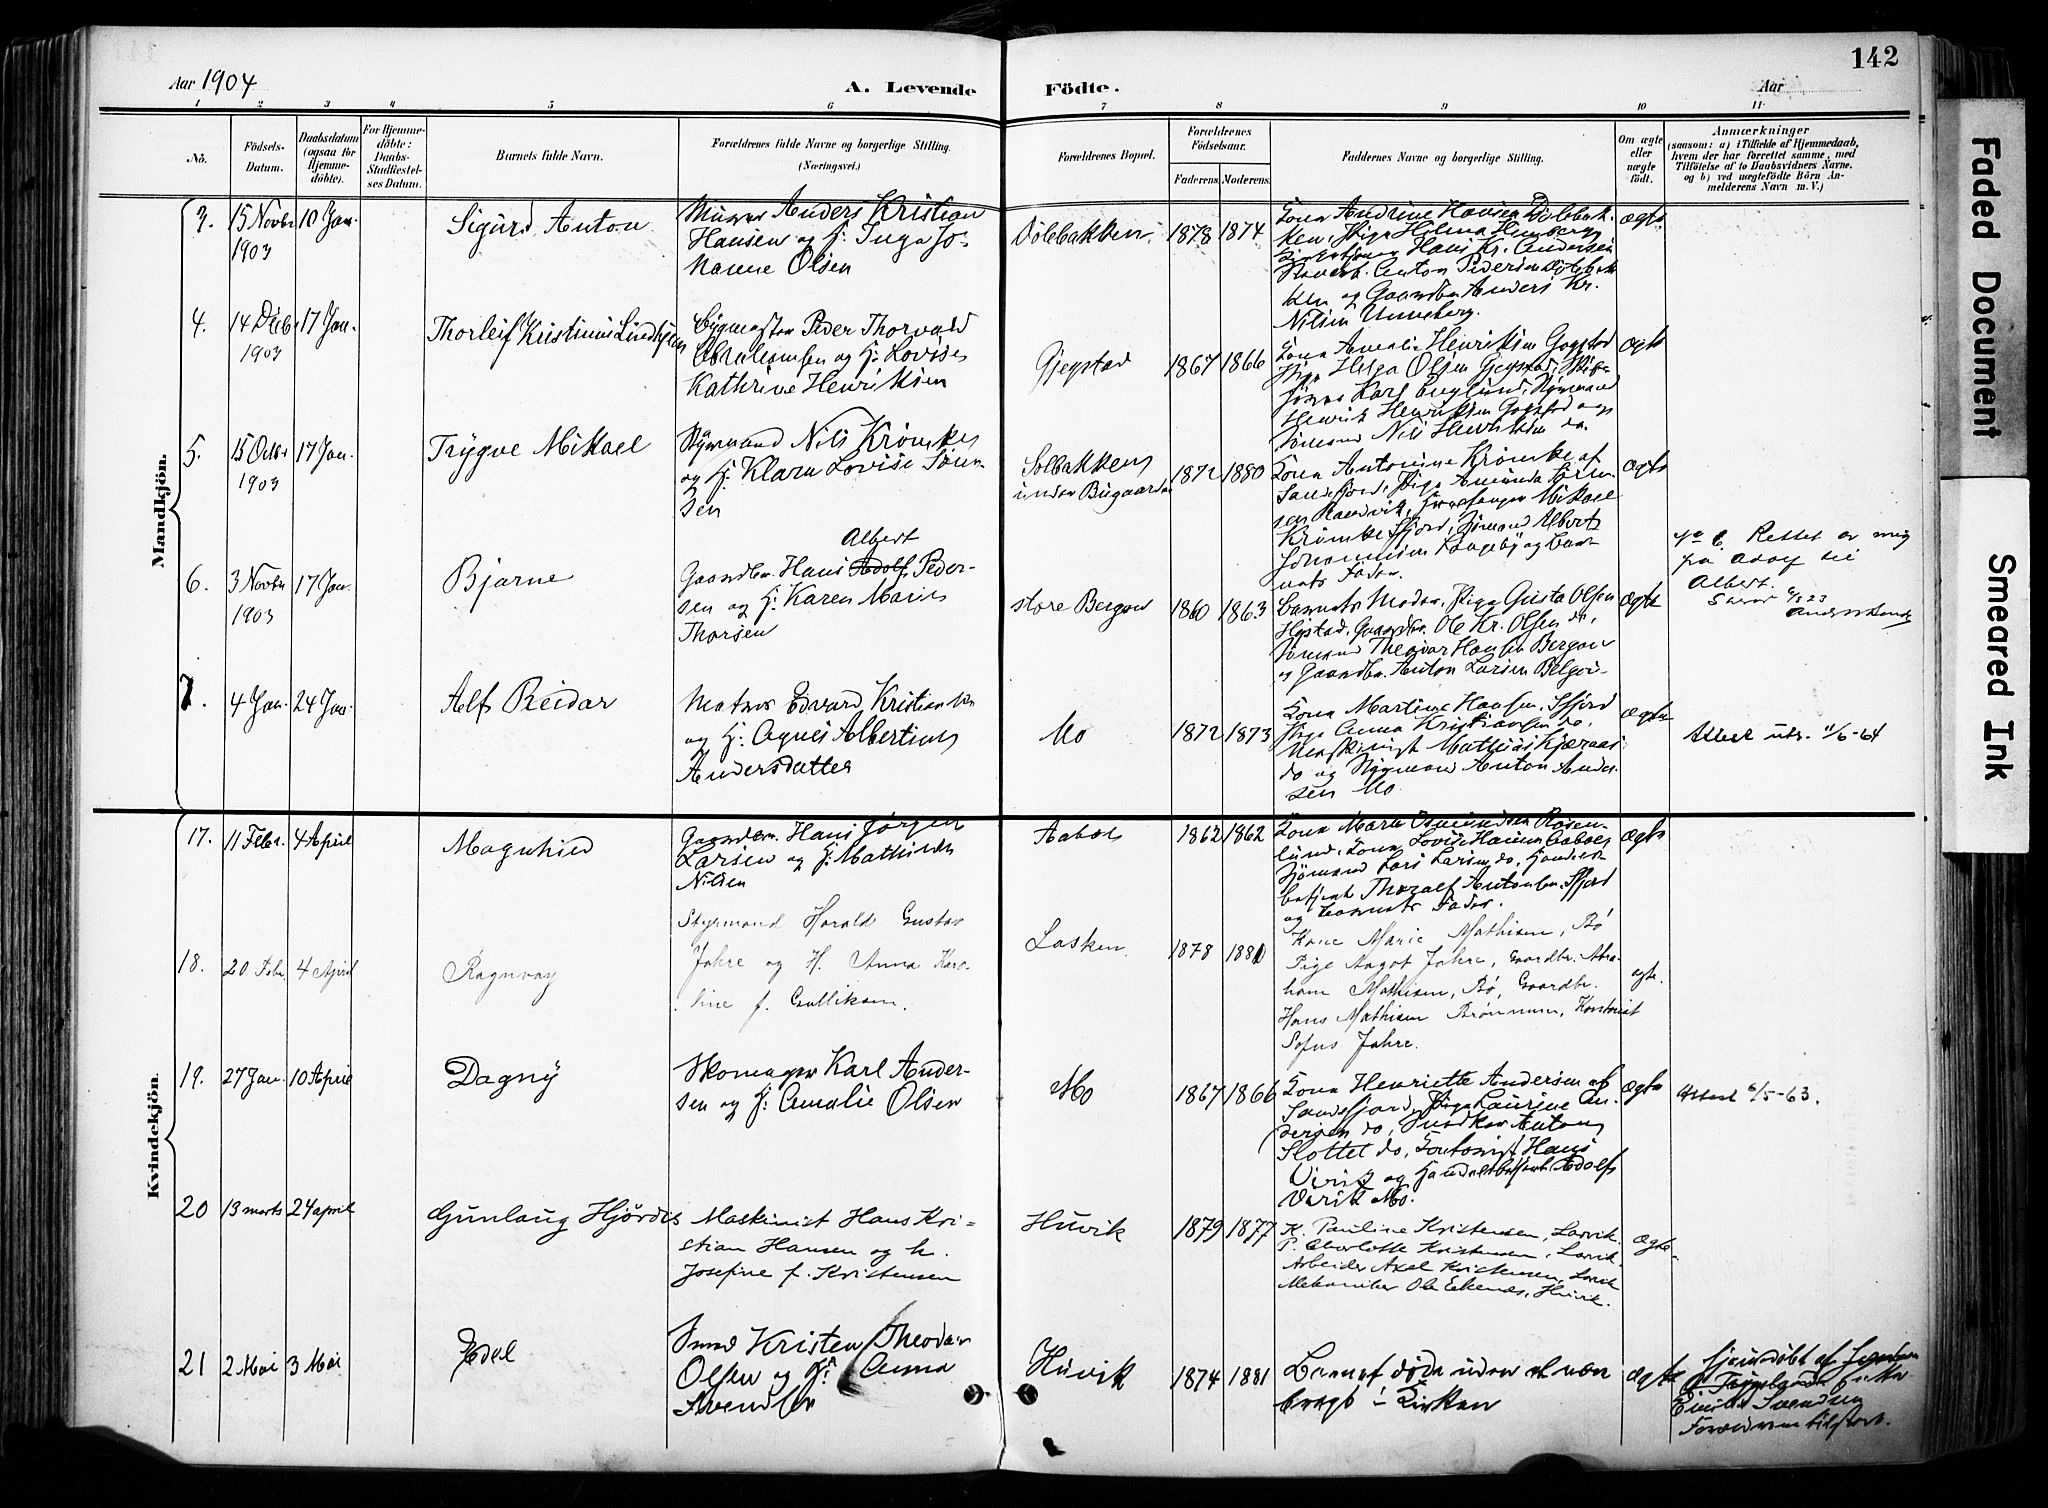 142
Aar 1904
A. Levende Födte.
Aar
1 2 3 4 5 6 7 8 9 10 11
No.
Födsels-Datum.
Daabsdatum (ogsaa for Hjemme-döbte).
For Hjemme-döbte: Daabs-Stadfæstel-ses Datum.
Barnets fulde Navn.
Forældrenes fulde Navne og borgerlige Stilling. (Næringsvei.)
Forældrenes Bopæl.
Forældrenes Födselsaar.
Faderens. Moderens.
Faddernes Navne og borgerlige Stilling.
Om ægte eller uægte födt.
Anmærkninger
(saasom: a) i Tilfælde af Hjemmedaab,
hvem der har forrettet samme, med
Tilföielse af to Daabsvidners Navne.
og b) ved uægtefödte Börn An-
melderens Navn m. V.)
Mandkjön.
3. 15 Novbr 1903 10 Jan. Sigurd Anton
Murer Anders Kristian
Hansen og H: Inga Jo-
hanne Olsen
Dölebakken 1878 1874
Kona Andrine Hansen Dölebak-
ken, Pige Helma
Hans Kr. Andersen
Anton Pedersen Dölebak-
ken og Gaardbr Anders Kr.
Nilsen Unneberg.
Ægte
4. 14 Decbr 1903 17 Jan. Thorleif Kristinius
Bygmester Peder Thorvald
Abrahamsen og H: Lovise
Kathrine Henriksen
Gjegstad 1867 1866
Kona Amalie Henriksen Gogstad
Pige Helga Olsen Gjegstad,
Karl Englund, Styrmand
Henrik Henriksen Gogstad og
Sömand Nils Henriksen do.
Ægte
5. 15 Octbr 1903 17 Jan. Trygve Mikael
Styrmand Nils Krömke
og H: Klara Lovise Sören-
sen
Solbakken
under Bugaarden 1872 1880
Kona Antonine Krömke af
Sandefjord, Pige Amanda Sören-
sen Ranvik, Mikael
Krömke Sfjord, Sömand Albert
Johannesen Langeby og Bar-
nets Fader.
Ægte
6. 3 Novbr 1903 17 Jan. Bjarne
Albert
Gaardbr. Hans Adolf Peder-
sen og H: Karen Marie
Thorsen
store Bergan 1860 1863
Barnets Moder, Pige Gusta Olsen
Hystad, Gaardbr. Ole Kr. Olsen do,
Sömand Theodor Hansen Bergan
og Gaardbr. Anton Larsen
Ægte
No 6. Rettet av mig
fra Adolf til
Albert.
7. 4 Jan. 24 Jan. Alf Reidar
Matros Edvard Kristiansen
og H: Agnes Albertine
Andersdatter
Mo 1872 1873
Kona Martine Hansen, Sfjord
Pige Anna Kristiansen do,
Mathias Kjeraas
do og Styrmand Anton Ander-
sen Mo
Ægte
Attest utst. 11/6-64
Kvindekjön.
17. 11 Febr. 4 April Magnhild
Gaardbr. Hans Jörgen
Larsen og H: Mathilde
Nilsen
Aabol 1862 1862
Kona Marie Rosen-
lund, Kona Lovise Hansen Aabol
Sjömand Lars Larsen do, Handels-
betjent Thoralf Antonsen Sfjord
og Barnets Fader.
Ægte
18. 20 Febr. 4 April Ragnvay
Styrmand Harald Gustav
Jahre og H. Anna Karo-
line f. Gulliksen.
Lasken 1878 1881
Kone Marie Mathisen, Bö
Pige Aagot Jahre, Gaardbr. Abra-
ham Mathisen, Bö, Gaardbr.
Hans Mathisen Brönnum, Kontorist
Sofus Jahre.
ægte.
19. 27 Jan. 10 April Dagny
Skomager Karl Ander-
sen og H: Amalie Olsen
Mo 1867 1866
Kona Henriette Andersen af
Sandefjord, Pige Laurine An-
dersen do, Snedker Anton
Slottet do, Kontorist Hans
Virik og Handelsbetjent Adolf
Virik Mo.
Ægte
Attest 6/5-63.
20 13 marts 24 april Gunlaug Hjördis
Maskinist Hans Kri-
stian Hansen og h.
Josefine f. Kristensen
Huvik 1879 1877
K. Pauline Kristensen, Larvik.
P. Charlotte Kristensen, Larvik.
Arbeider Axel Kristensen, Larvik
Mekaniker Ole Ekenes, Huvik.
ægte
21 2 Mai 3 Mai Edel
Smed Kristen Theodor
Olsen og H: Anna
Svendsen
Huvik 1874 1881
Barnet döde uden at være
bragt i Kirken
Ægte
Hjemdöbt af
Emilie Svendsen
Forældrene tilstede.
Faded Document
Smeared Ink